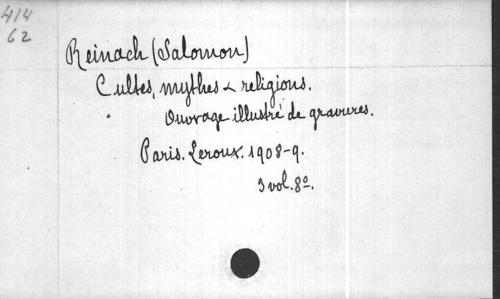 414
62
Reinach (Salomon)
Cultes, mythes & religions.
Ouvrage illustré de gravures.
Paris. Leroux. 1908-9.
3 vol. 8º.